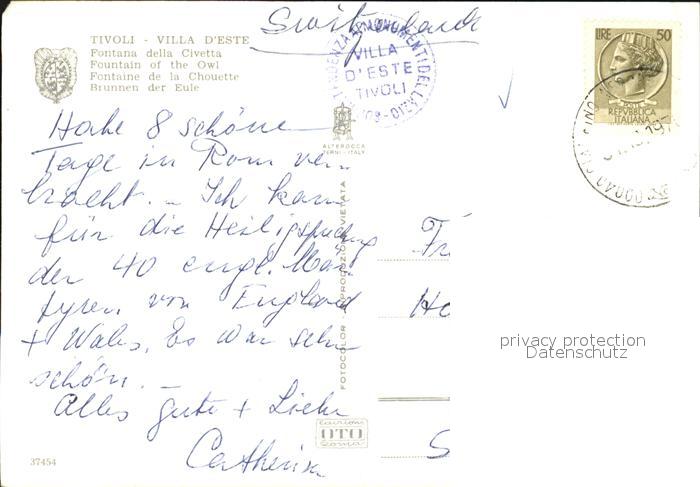 Switzerland
TIVOLI - VILLA D'ESTE
Fontana della Civetta
Fountain of the Owl
Fontaine de la Chouette
Brunnen der Eule
VILLA
D'ESTE
TIVOLI
LIRE 50
REPVBBLICA
ITALIANA
Habe 8 schöne
Tage in Rom ver-
bracht. - Ich kam
für die Heiligsprechung
der 40 engl. Mär-
tyrer von England
+ Wales. Es war sehr
schön. -
Alles gute + Liebe
Catherina
ALTEROCCA
TERNI - ITALY
FOTOCOLOR - RIPRODUZIONE VIETATA
edizioni
OTO
Roma
Fr
Ho
S
privacy protection
Datenschutz
37454